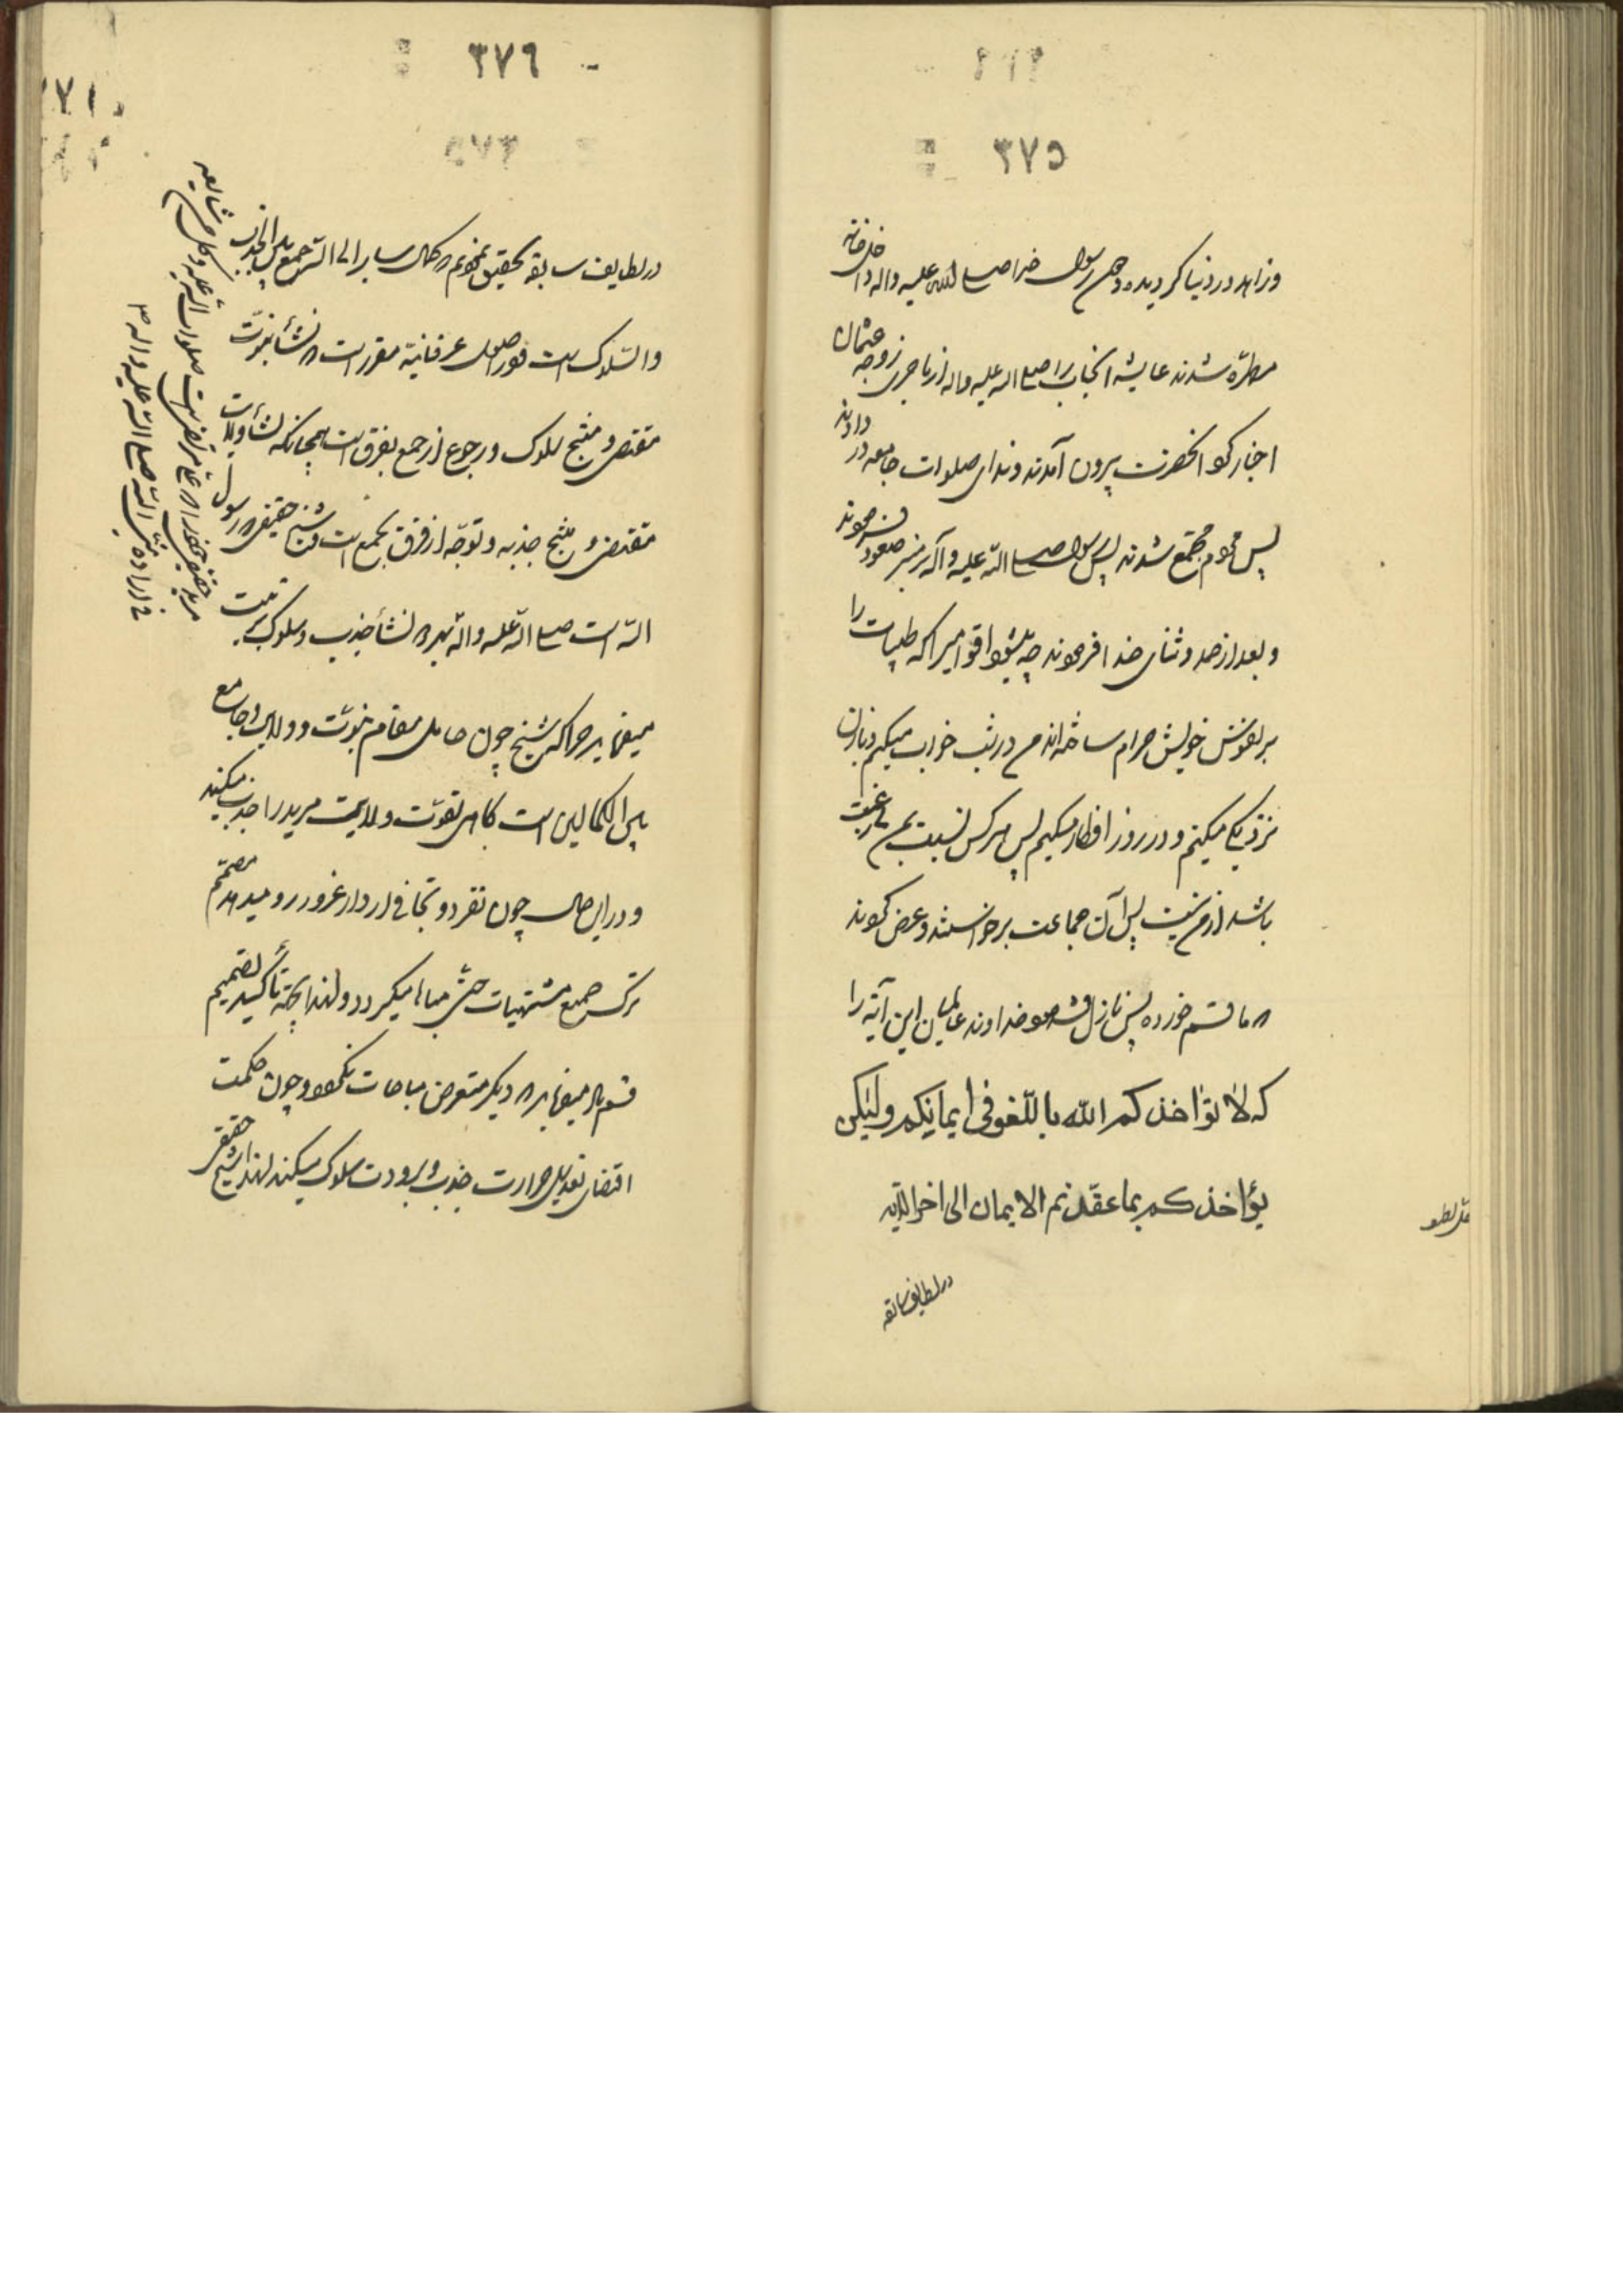 ٣٧٥
وزاهد در دنیا کردیده و چون رسول خدا صلی الله علیه واله داخل خانه
مطهره شدند عایشه انجناب را صلی الله علیه واله از ماجرای زوجه عثمان
اخبار کرد انحضرت بیرون آمدند وندای صلوات جامعه در دادند
پس مردم مجتمع شدند پس رسول صلی الله علیه وآله بر منبر صعود فرمودند
و بعد از حمد وثنای خدا فرمودند چه میشود اقوامیرا که طیبات را
بر نفوس خویش حرام ساخته اند من در شب خواب میکنم و با زنان
نزدیکی میکنم و در روز افطار میکنیم پس هر کس نسبت بمن بی رغبت
باشد از من نیست پس آن جماعت برخواستند و عرض کردند
که ما قسم خورده پس نازل فرمود خداوند عالمیان این آیه را
که لا یؤاخذکم الله باللغو فی ایمانکم ولیکن
یؤاخذکم بما عقدتم الایمان الی اخر الآیه
در لطایف سابقه
٣٧٦
در لطایف سابقه تحقیق نمودیم که کمال سایر الی الله جمع بین الجذب
والسلوک است و در اصول عرفانیة مقرر است که نشأ نبوت
مقتضی و منتج سلوک و رجوع از جمع بفرق است همچنانکه نشأ ولایت
مقتضی و منتج جذبه و توجه از فرق بجمع است و شیخ حقیقی که رسول
الله است صلی الله علیه واله بهر دو نشأ جذب و سلوک تربیت
میفرماید چرا که شیخ چون حامل مقام نبوت و ولایت و جامع
بین الکمالین است کاهی بقوت ولایت مرید را جذب میکند
و در این حال چون تفرد و تجافی از دار غرور رو میدهد مصمم
ترک جمیع مشتهیات حتی مباحات میکردد و لهذا بجهة تأکید تصمیم
قسم یاد میفرماید که دیگر متعرض مباحات نکردد و چون حکمت
اقتضای تعدیل حرارت جذب و برودت سلوک میکند لهذا شیخ حقیقی